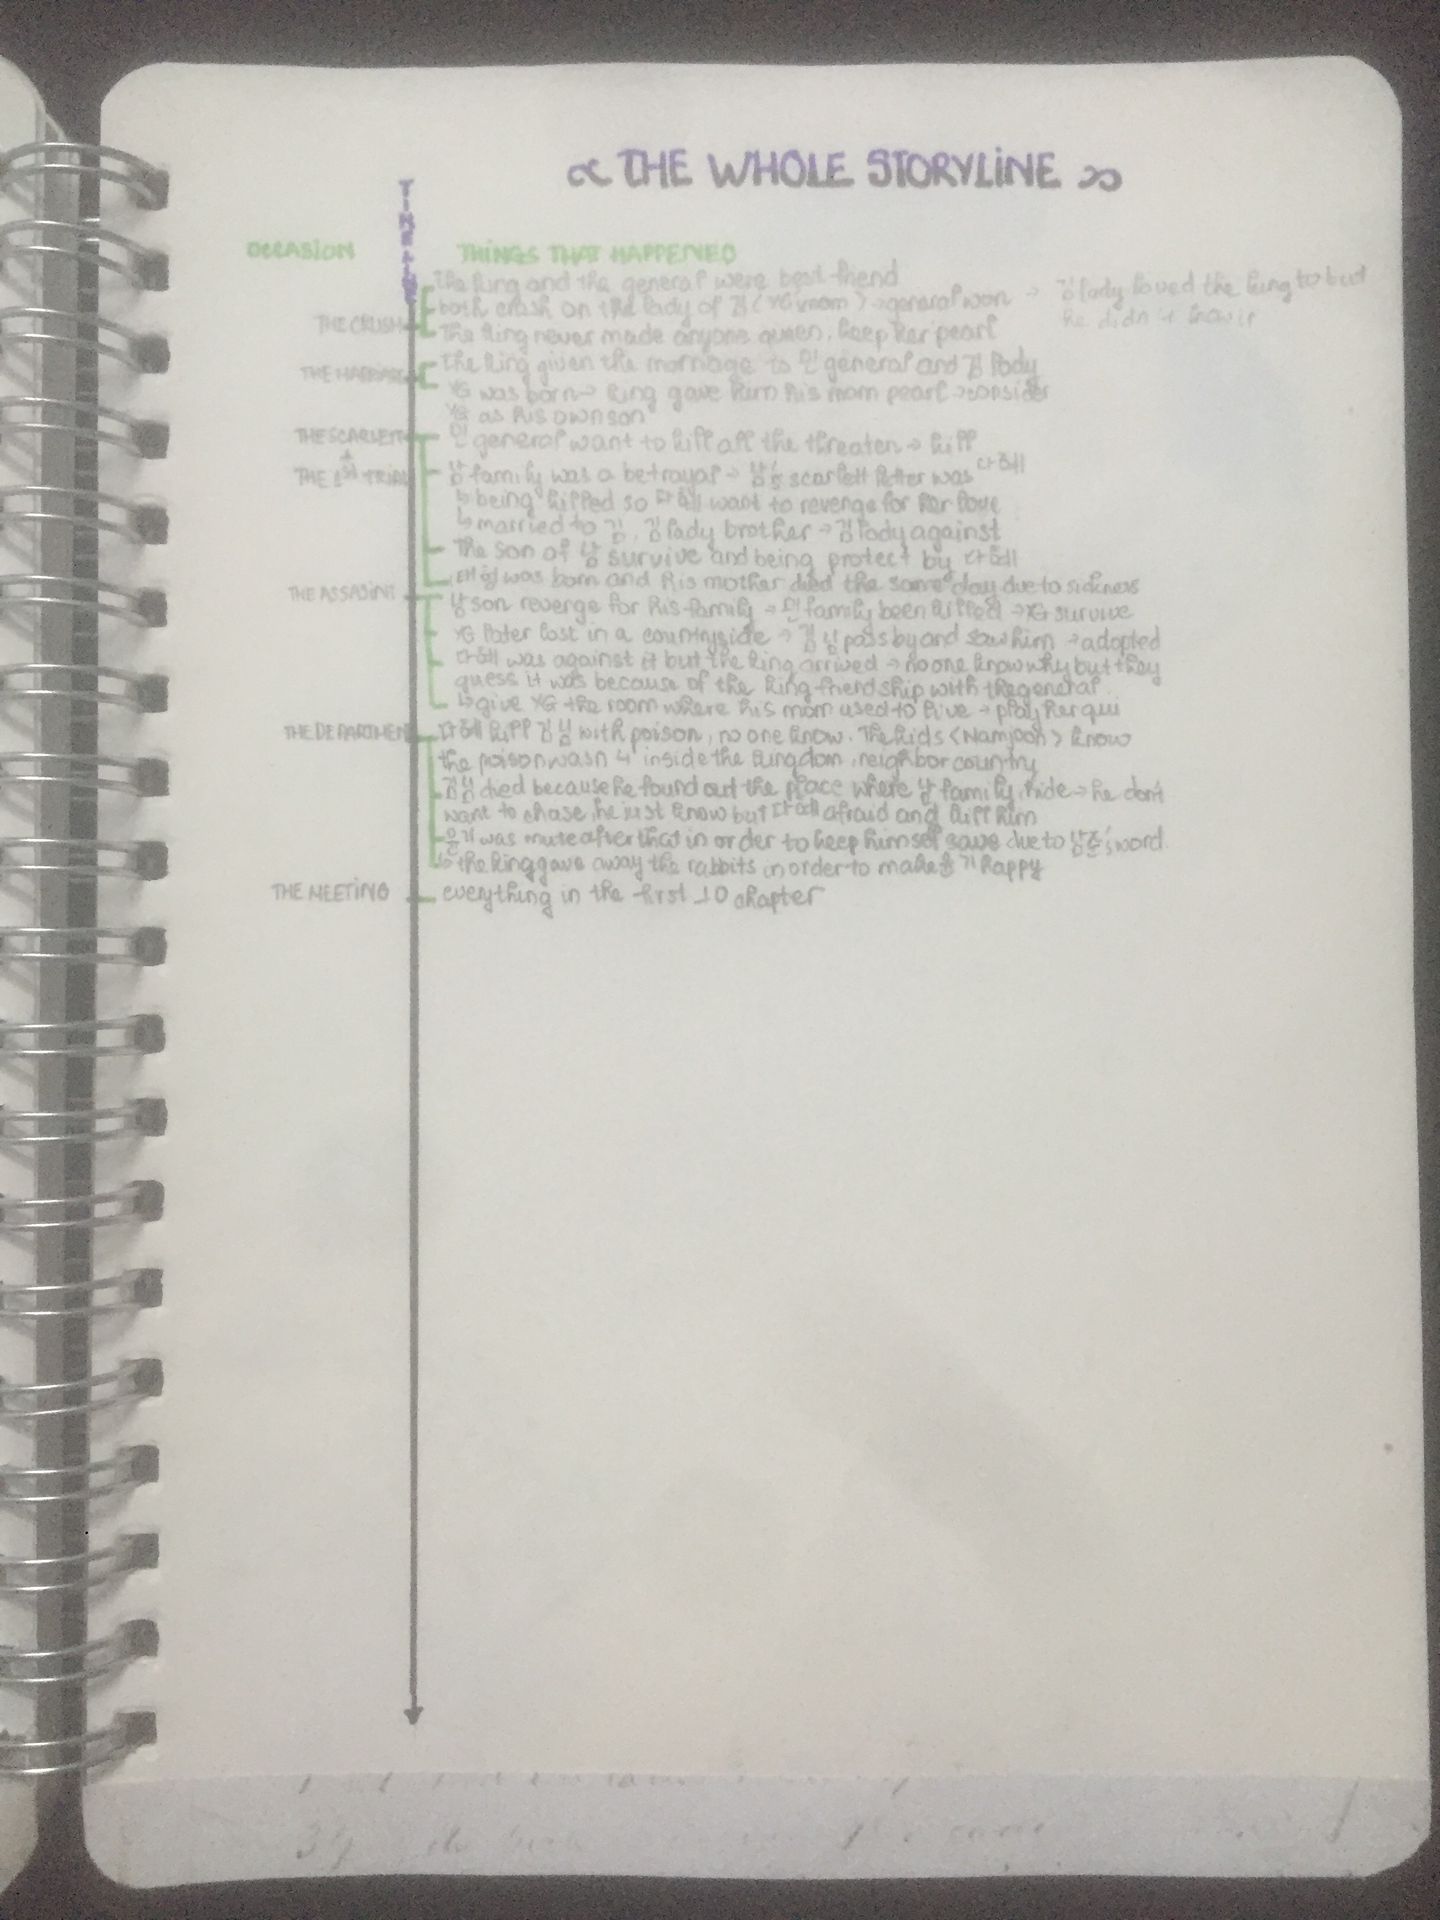 THE WHOLE STORYLINE
TIMELINE
OCCASION
THINGS THAT HAPPENED
the king and the general were best friend
THE CRUSH
both crash on the lady of 김 (YG mom) → general won → 김 lady loved the king to but
he didn't know it
the king never made anyone queen, keep her pearl
THE MARRIAGE
the king given the marriage to 민 general and 김 lady
YG was born → king gave him his mom pearl → consider
YG as his own son
THE SCARLETT
민 general want to kill all the threaten → kill
THE 1st TRIAL
남 family was a betrayal → scarlett letter was
↳ being killed so want to revenge for her love
↳ married to 김, 김 lady brother → 김 lady against
the son of 남 survive and being protect by
태형 was born and his mother died the same day due to sickness
THE ASSASINT
남 son revenge for his family → 민 family been killed → YG survive
YG later lost in a countryside → 김 남 pass by and saw him → adopted
was against it but the king arrived → no one know why but they
guess it was because of the king friendship with the general
↳ give YG the room where his mom used to live → play her qui
THE DEPARTMENT
kill 김 남 with poison, no one know. The kids <Namjoon> know
the poison wasn't inside the kingdom, neighbor country
김 남 died because he found out the place where 남 family hide → he don't
want to chase, he just know but afraid and kill him
윤기 was mute after that in order to keep himself save due to 남준's word
↳ the king gave away the rabbits in order to make 윤기 happy
THE MEETING
everything in the first 10 chapter